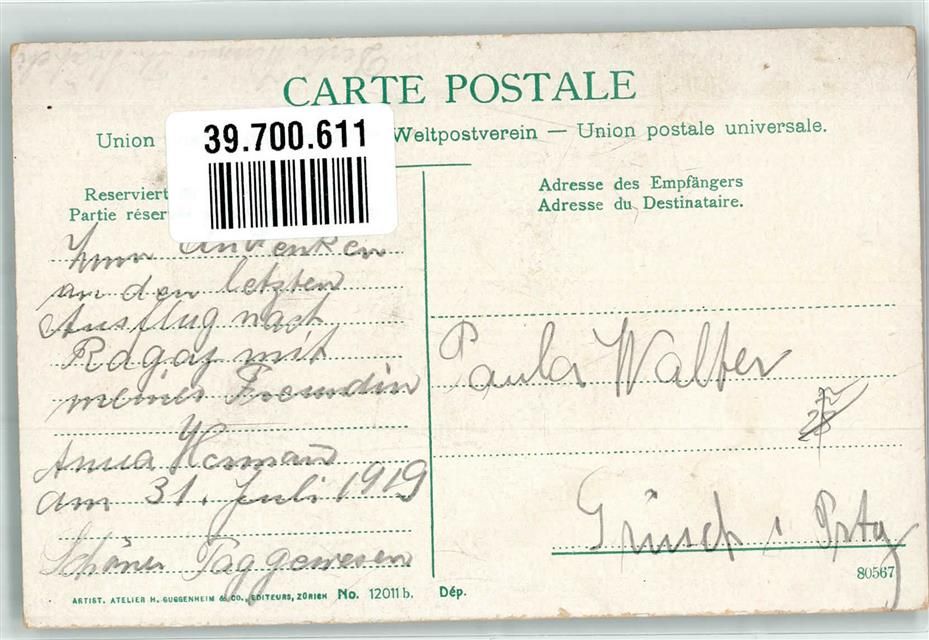 CARTE POSTALE
Union Weltpostverein — Union postale universale.
39.700.611
Reserviert
Partie réser
Adresse des Empfängers
Adresse du Destinataire.
Zum Andenken
an den letzten
Ausflug nach
Ragaz mit
meiner Freundin
Anna
am 31. Juli 1919
Schöner Tag gewesen
Paula Walter
Grüsch i Prtg
80567
ARTIST. ATELIER H. GUGGENHEIM & CO., EDITEURS, ZÜRICH No. 12011b. Dép.